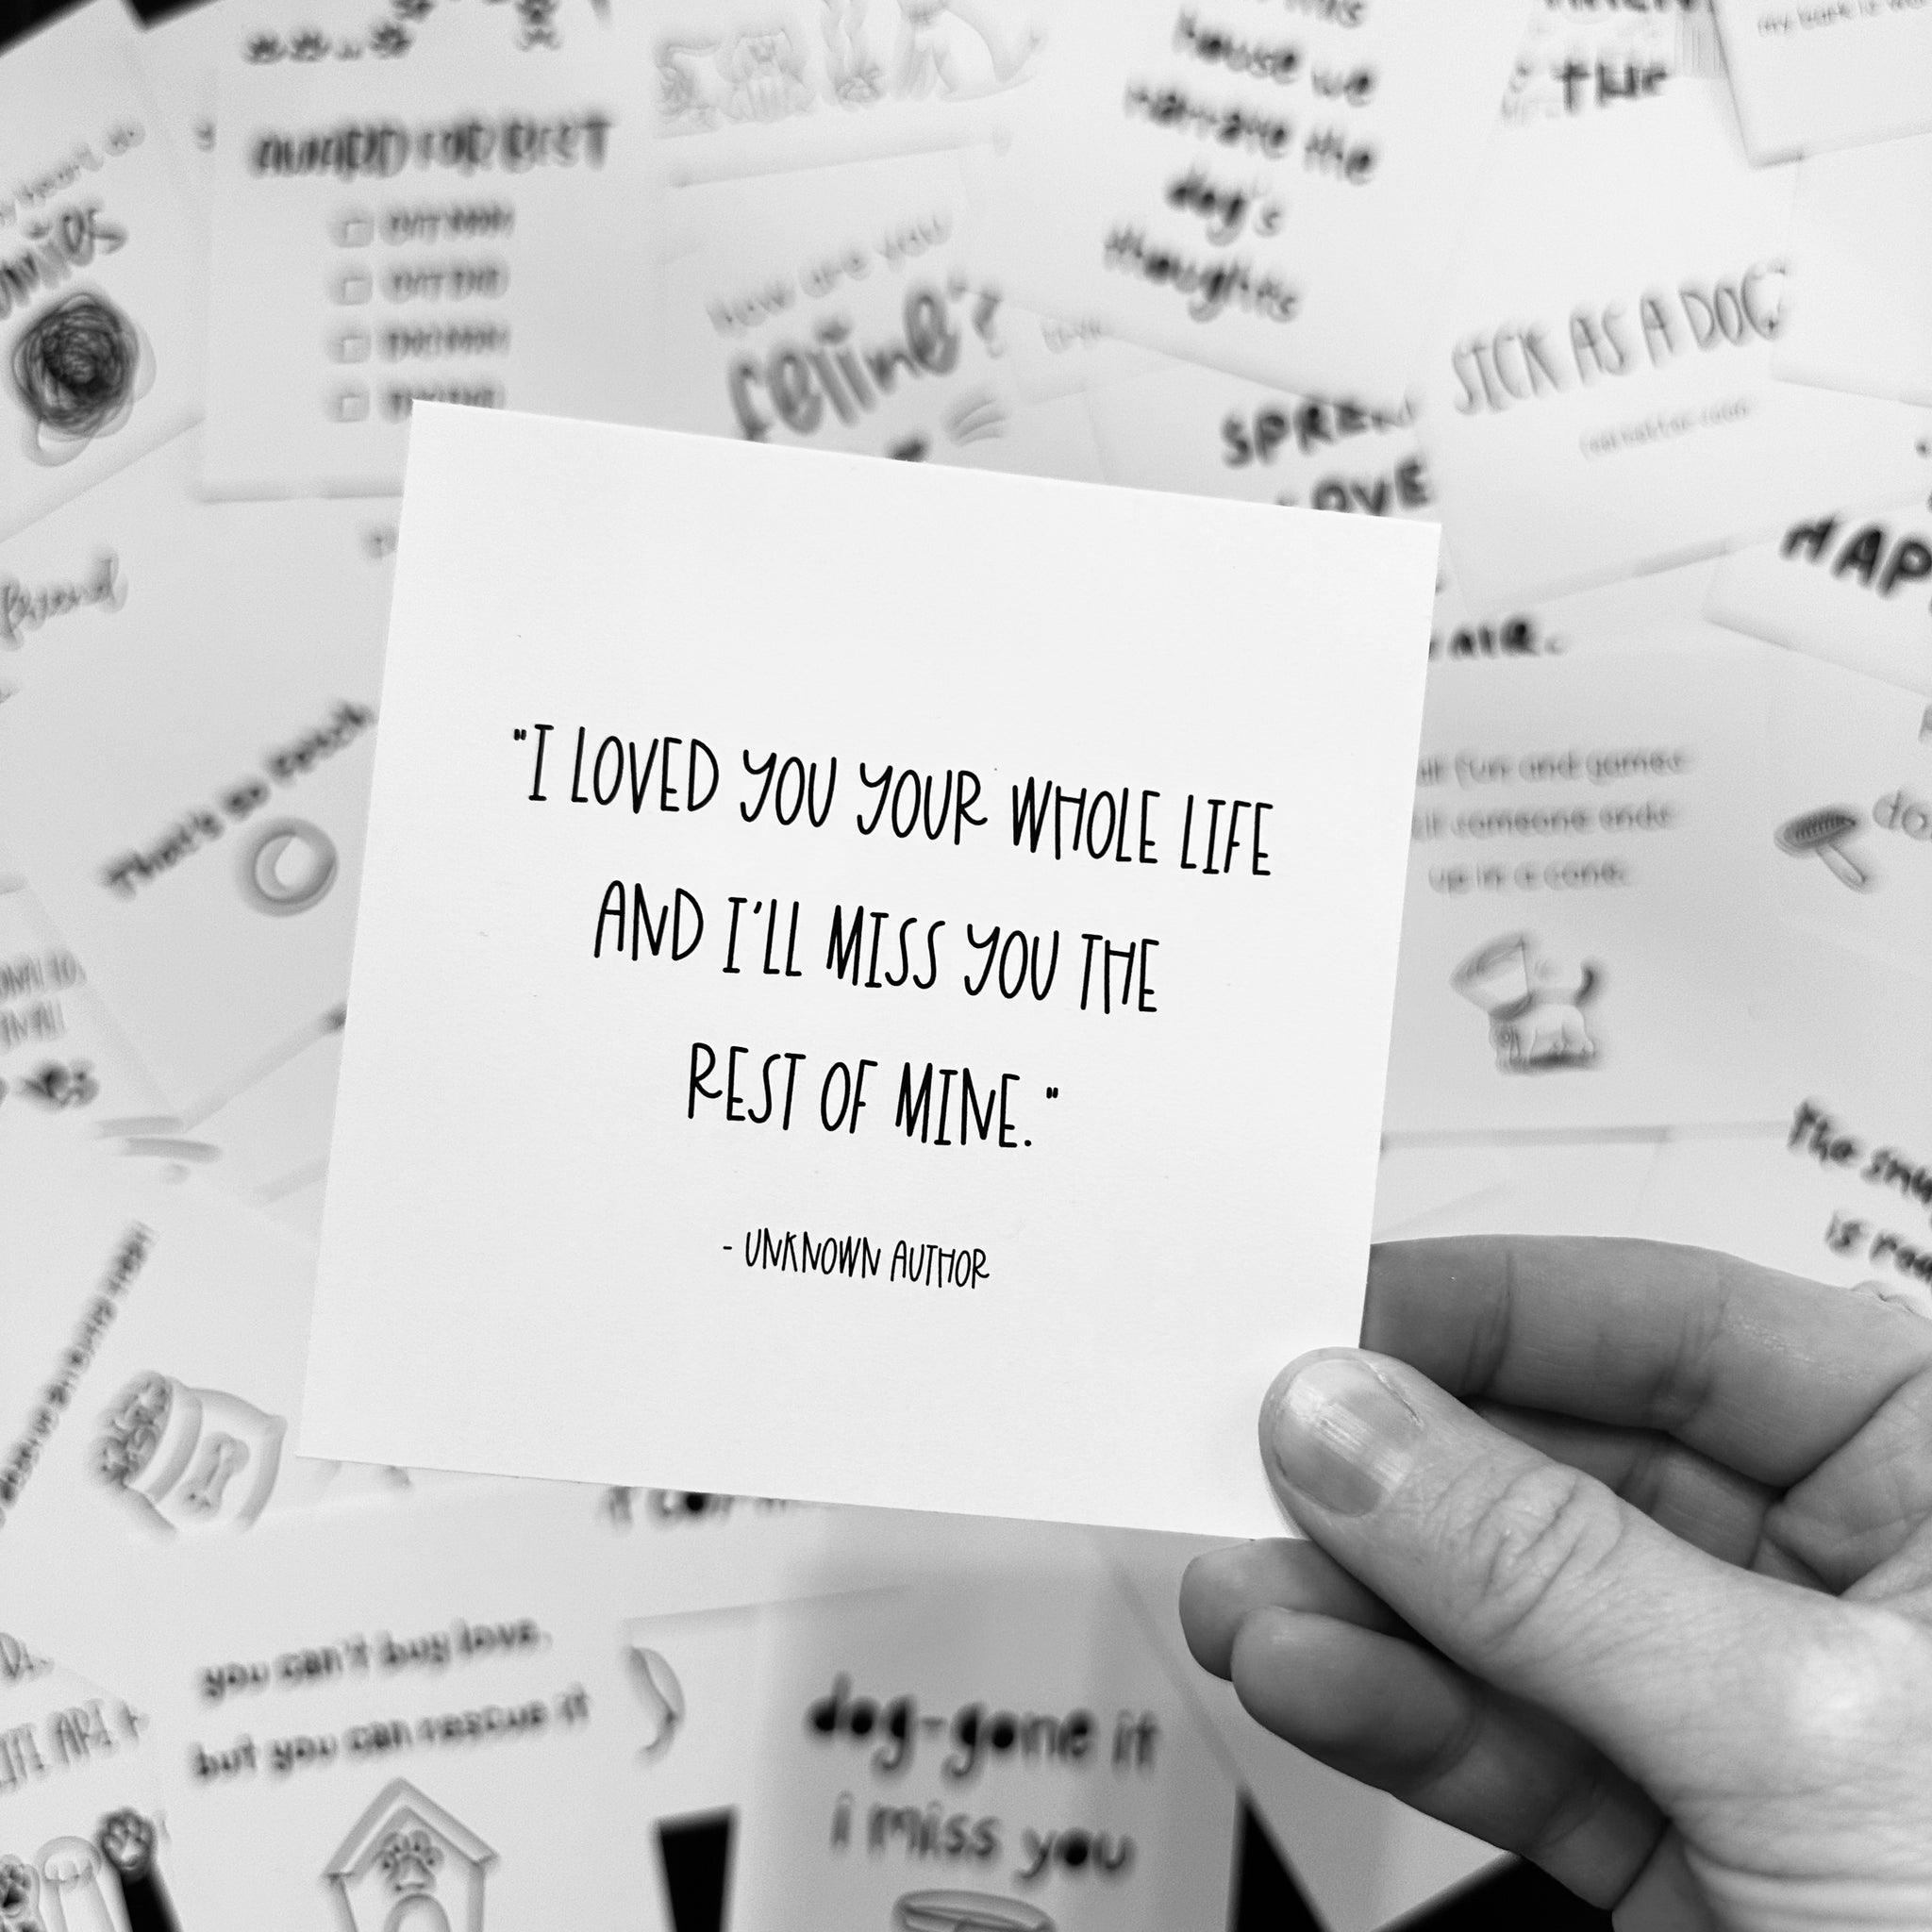 house we
narrate the
dog's
thoughts
THE
AWARD FOR BEST
How are you
feline?
SICK AS A DOG?
SPREAD
LOVE
HAP
friend
AIR.
That's so fetch
"I LOVED YOU YOUR WHOLE LIFE
AND I'LL MISS YOU THE
REST OF MINE."
- UNKNOWN AUTHOR
fun and games
someone ends
up in a cone.
The
is
you can't buy love,
but you can rescue it
dog-gone it
i miss you